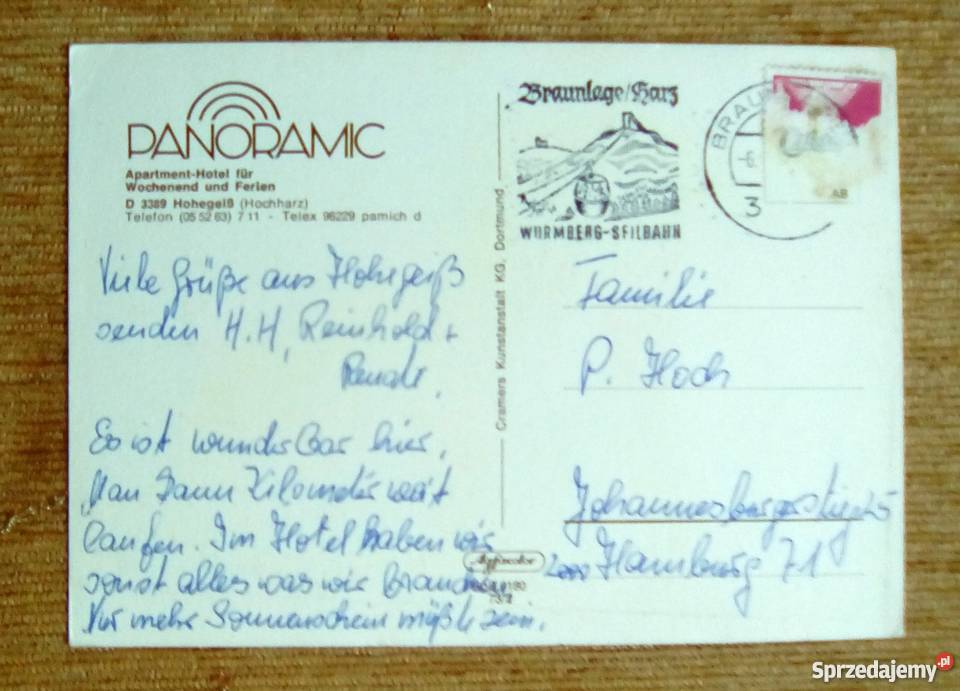 PANORAMIC
Apartment-Hotel für
Wochenend und Ferien
D 3389 Hohegeiß (Hochharz)
Telefon (05 52 63) 7 11 - Telex 96229 pamich d
Viele Grüße aus Hohegeiß
senden H.H, Reinhold +
Renate.
Es ist wunderbar hier.
Man kann Kilometer weit
laufen. Im Hotel haben wir
sonst alles was wir brauchen.
Nur mehr Sonnenschein müßte sein.
Cramers Kunstanstalt KG, Dortmund
Braunlage/Harz
WURMBERG-SEILBAHN
BRAUN
-6.
3
AB
Familie
P. Hoch
2000 Hamburg 71
Sprzedajemy.pl